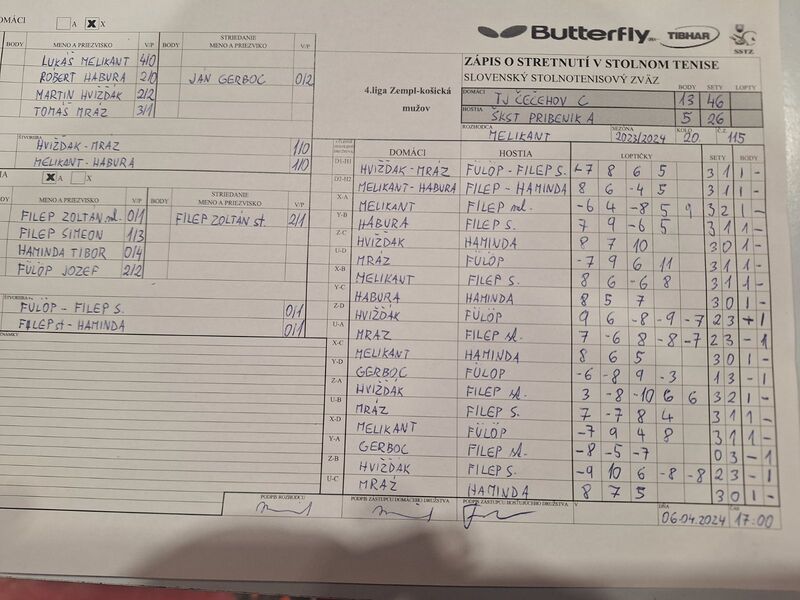 DOMÁCI A X X
BODY MENO A PRIEZVISKO V/P BODY STRIEDANIE MENO A PRIEZVISKO V/P
LUKÁŠ MELIKANT 4/0
ROBERT HABURA 2/0 JÁN GERBOC 0/2
MARTIN HVIŽĎÁK 2/2
TOMÁŠ MRÁZ 3/1
ŠTVORHRA
HVIŽĎÁK - MRÁZ 1/0
MELIKANT - HABURA 1/0
IA X A X
BODY MENO A PRIEZVISKO V/P BODY STRIEDANIE MENO A PRIEZVISKO V/P
FILEP ZOLTÁN ml. 0/1 FILEP ZOLTÁN st. 2/1
FILEP SIMEON 1/3
HAMINDA TIBOR 0/4
FÜLÖP JOZEF 2/2
ŠTVORHRA
FÜLÖP - FILEP S. 0/1
FILEP st - HAMINDA 0/1
NÁMKY
Butterfly TIBHAR SSTZ
ZÁPIS O STRETNUTÍ V STOLNOM TENISE
SLOVENSKÝ STOLNOTENISOVÝ ZVÄZ
4.liga Zempl-košická mužov
BODY SETY LOPTY
DOMÁCI TJ ČEČEHOV C 13 46
HOSTIA ŠKST PRIBENÍK A 5 26
ROZHODCA MELIKANT SEZÓNA 2023/2024 KOLO 20 Č.Z. 115
DOMÁCI HOSTIA LOPTIČKY SETY BODY
D1-H1 HVIŽĎÁK - MRÁZ FÜLÖP - FILEP S. -7 8 6 5 3 1 1 -
D2-H2 MELIKANT - HABURA FILEP - HAMINDA 8 6 -4 5 3 1 1 -
X-A MELIKANT FILEP ml. -6 4 -8 5 9 3 2 1 -
Y-B HABURA FILEP S. 7 9 -6 5 3 1 1 -
Z-C HVIŽĎÁK HAMINDA 8 7 10 3 0 1 -
U-D MRÁZ FÜLÖP -7 9 6 11 3 1 1 -
X-B MELIKANT FILEP S. 8 6 -6 8 3 1 1 -
Y-C HABURA HAMINDA 8 5 7 3 0 1 -
Z-D HVIŽĎÁK FÜLÖP 9 6 -8 -9 -7 2 3 - 1
U-A MRÁZ FILEP st. 7 -6 8 -8 -7 2 3 - 1
X-C MELIKANT HAMINDA 8 6 5 3 0 1 -
Y-D GERBOC FÜLÖP -6 -8 9 -3 1 3 - 1
Z-A HVIŽĎÁK FILEP st. 3 -8 -10 6 6 3 2 1 -
U-B MRÁZ FILEP S. 7 -7 8 4 3 1 1 -
X-D MELIKANT FÜLÖP -7 9 4 8 3 1 1 -
Y-A GERBOC FILEP st. -8 -5 -7 0 3 - 1
Z-B HVIŽĎÁK FILEP S. -9 10 6 -8 -8 2 3 - 1
U-C MRÁZ HAMINDA 8 7 5 3 0 1 -
PODPIS ROZHODCU PODPIS ZÁSTUPCU DOMÁCEHO DRUŽSTVA PODPIS ZÁSTUPCU HOSŤUJÚCEHO DRUŽSTVA V DŇA ČAS
06.04.2024 17:00